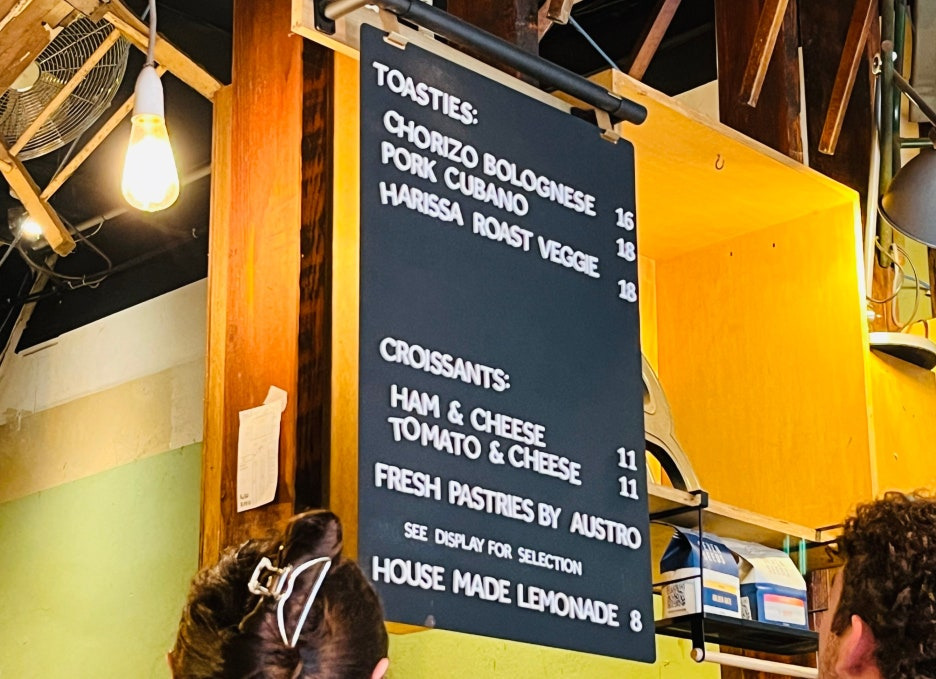 TOASTIES:
CHORIZO BOLOGNESE 16
PORK CUBANO 18
HARISSA ROAST VEGGIE 18
CROISSANTS:
HAM & CHEESE 11
TOMATO & CHEESE 11
FRESH PASTRIES BY AUSTRO
SEE DISPLAY FOR SELECTION
HOUSE MADE LEMONADE 8